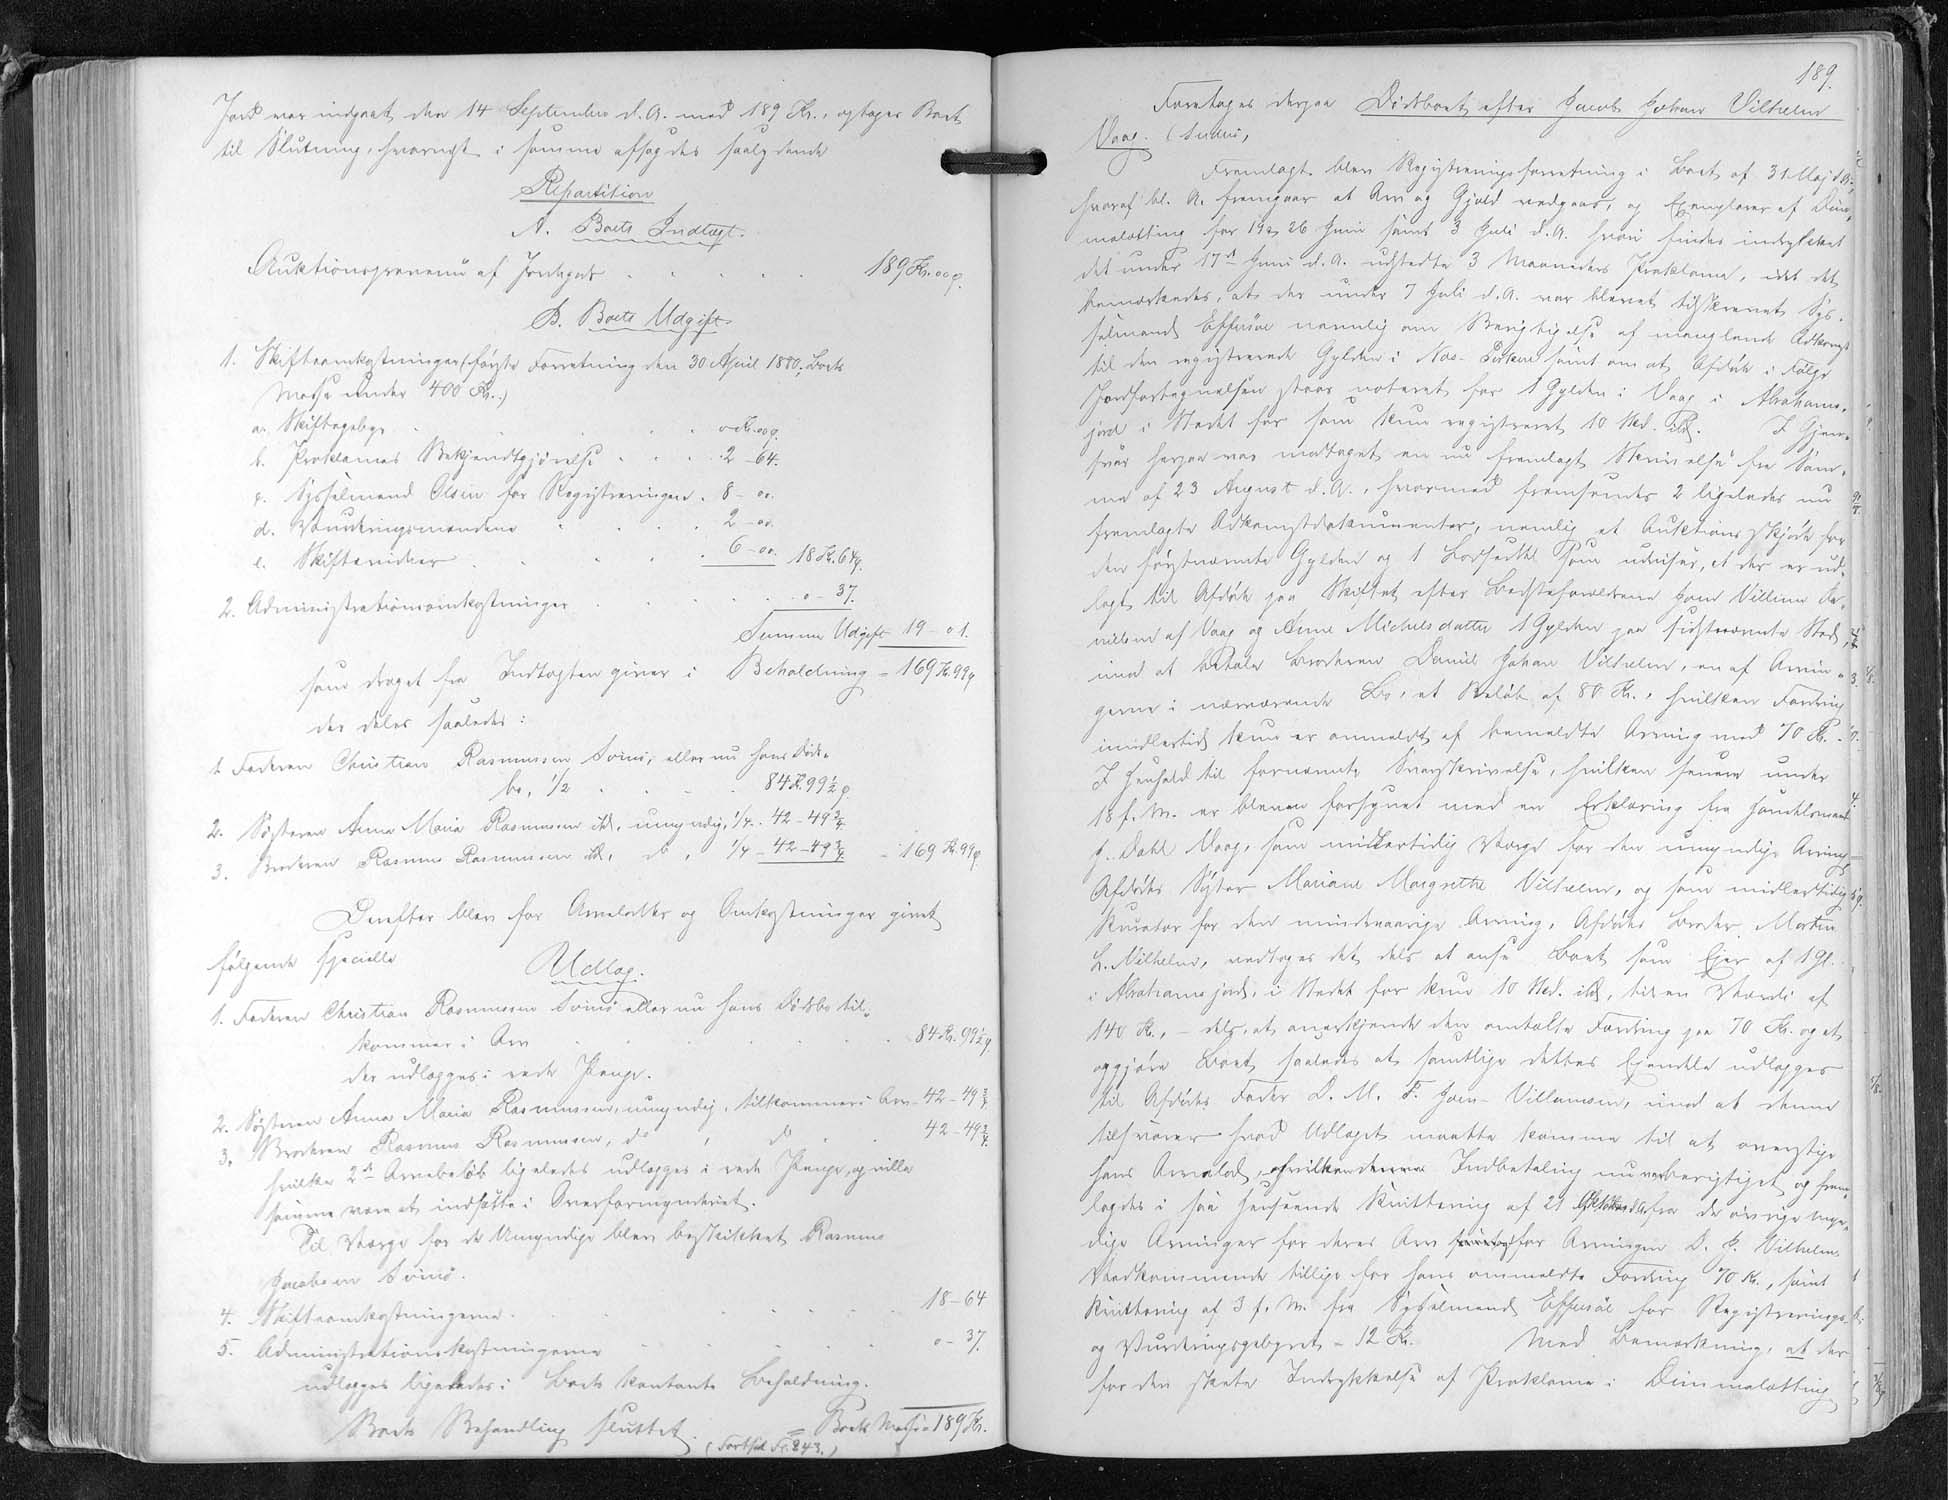 Jord var indgaaet den 14 September d.A. med 189 Kr., optoges Boet
til Slutning, hvorncest i samme afsagdes saalydende
Repartition
A. Boets Indtægt.
Auktionsprovenü af Jordegods 189 Kr. 00 ø.
B. Boets Udgift.
1. Skifteomkostninger (første Forretning den 30 April 1880; Boets
Masse under 400 Kr.)
a. Skiftegebyr 0 Kr. 00 ø.
b. Proklamas Bekjendtgjørelse 2 - 64.
c. Sysselmand Olsen for Registreringen 8 - 00.
d. Vurderingsmændene 2 - 00.
e. Skifterider 6 - 00. 18 Kr. 64 ø.
2. Administrationsomkostninger 0 - 37.
Summa Udgift 19 - 01.
som draget fra Indtægten giver i Beholdning = 169 Kr. 99 ø
der deles saaledes:
1. Faderen Christian Rasmussen eller nu hans Døds-
bo, 1/2 84 K. 99 1/2 ø.
2. Søsteren Anna Maria Rasmussen ibd, umyndig, 1/4 42 - 49 3/4
3. Broderen Rasmus Rasmussen ibd, do, 1/4 - 42 - 49 3/4 = 169 Kr. 99 ø.
Derefter blev for Arvelodder og Omkostninger givet
følgende specielle
Udlæg.
1. Faderen Christian Rasmussen eller nu hans Dødsbo til-
kommer i Arv 84 Kr. 99 1/2 ø.
der udlægges i rede Penge.
2. Søsteren Anna Maria Rasmussen, umyndig, tilkommer i Arv 42 - 49 3/4
3. Broderen Rasmus Rasmussen, do, do 42 - 49 3/4
hvilke 2de Arvebeløb ligeledes udlægges i rede Penge, og ville
samme være at indsætte i Overformynderiet.
Til Værge for de Umyndige blev beskikket Rasmus
Jacobsen
4. Skifteomkostningerne 18 - 64
5. Administrationskostningerne 0 - 37.
udlægges ligeledes i Boets kontante Beholdning.
= Boets Masse 189 Kr.
Boets Behandling sluttet. (Fortsat Fr. 243.)
189.
Foretoges derpaa Dødsboet efter Jacob Johan Vilhelm
Vaag.
Fremlagt blev Registreringsforretning i Boet af 31 Maj d.A.,
hvoraf bl. A. fremgaar at Arv og Gjæld vedgaaes, og Exemplarer af Dim-
malætting for 19 26 Juni samt 3 Juli d.A. hvori findes indrykket
det under 17de Juni d.A. udstedte 3 Maaneders Proklama, idet det
bemærkedes, at der under 7 Juli d.A. var blevet tilskrevet Sys-
selmand Effersøe nemlig om Berigtigelse af manglende Adkomst
til den registrerede Gylden i Nes- samt om at Afdøde i Følge
Jordfortegnelsen staar noteret for 1 Gylden i Vaag i Abrahams-
jord i Stedet for som kun registreret 10 Skd. ibd. I Gjen-
svar herpaa var modtaget en nu fremlagt Skrivelse fra Sam-
me af 23 August d.A., hvormed fremsendes 2 ligeledes nu
fremlagte Adkomstdokumenter, nemlig et Auktionsskjøde for
den førstnævnte Gylden og 1 Lodseddel som udviser, at der er ud-
lagt til Afdøde paa Skiftet efter Bedsteforældrene Joen Villum Da-
nielsen af Vaag og Anne Michelsdatter 1 Gylden paa sidstnævnte Sted,
imod at betale Broderen Daniel Johan Vilhelm, en af Arvin-
gerne i nærværende Bo, et Beløb af 80 Kr., hvilken Fordring
imidlertid kun er anmeldt af bemeldte Arving med 70 Kr.
I Henhold til fornævnte Svarskrivelse, hvilken senere under
18 f. M. er bleven forsynet med en Erklæring fra Handelsmand
J. Dahl Vaag, som midlertidig Værge for den umyndige Arving
Afdødes Søster Mariane Margrethe Vilhelm, og som midlertidig
Kurator for den mindreaarige Arving, Afdødes Broder Morten
L. Vilhelm, vedtoges det dels at anse Boet som Ejer af 1 Gl.
i Abrahamsjord, i Stedet for kun 10 Skd. ibd, til en Værdi af
140 Kr., - dels at anerkjende den omtalte Fordring paa 70 Kr. og at
opgjøre Boet saaledes at samtlige dettes Ejendele udlægges
til Afdødes Fader D. M. F. Joen-Villumsen, imod at denne
tilsvarer hvad Udlæget maatte komme til at overstige
hans Arvelod, Indbetaling nu var berigtiget og frem-
lagdes i saa Henseende Kvittering af 21 Oktober d.A. fra de øvrige myn-
dige Arvinger for deres Arv for Arvingen D. J. Vilhelms
Vedkommende tillige for hans anmeldte Fordring 70 Kr., samt
Kvittering af 3 f. M. fra Sysselmand Effersøe for Registrerings-
og Vurderingsgebyret = 12 Kr. Med Bemærkning, at der
for den skete Indrykkelse af Proklama i Dimmalætting